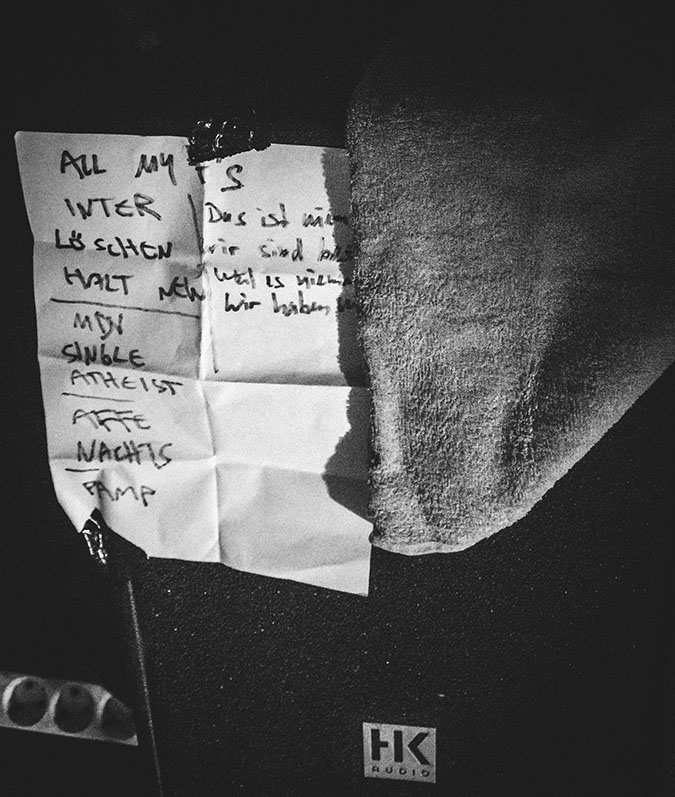 ALL MY
S
INTER
LÖSCHEN
HALT NEW
MDN
SINGLE
ATHEIST
AFFE
NACHTS
PAMP
Das ist
wir sind
Weil es
Wir haben
HK
AUDIO